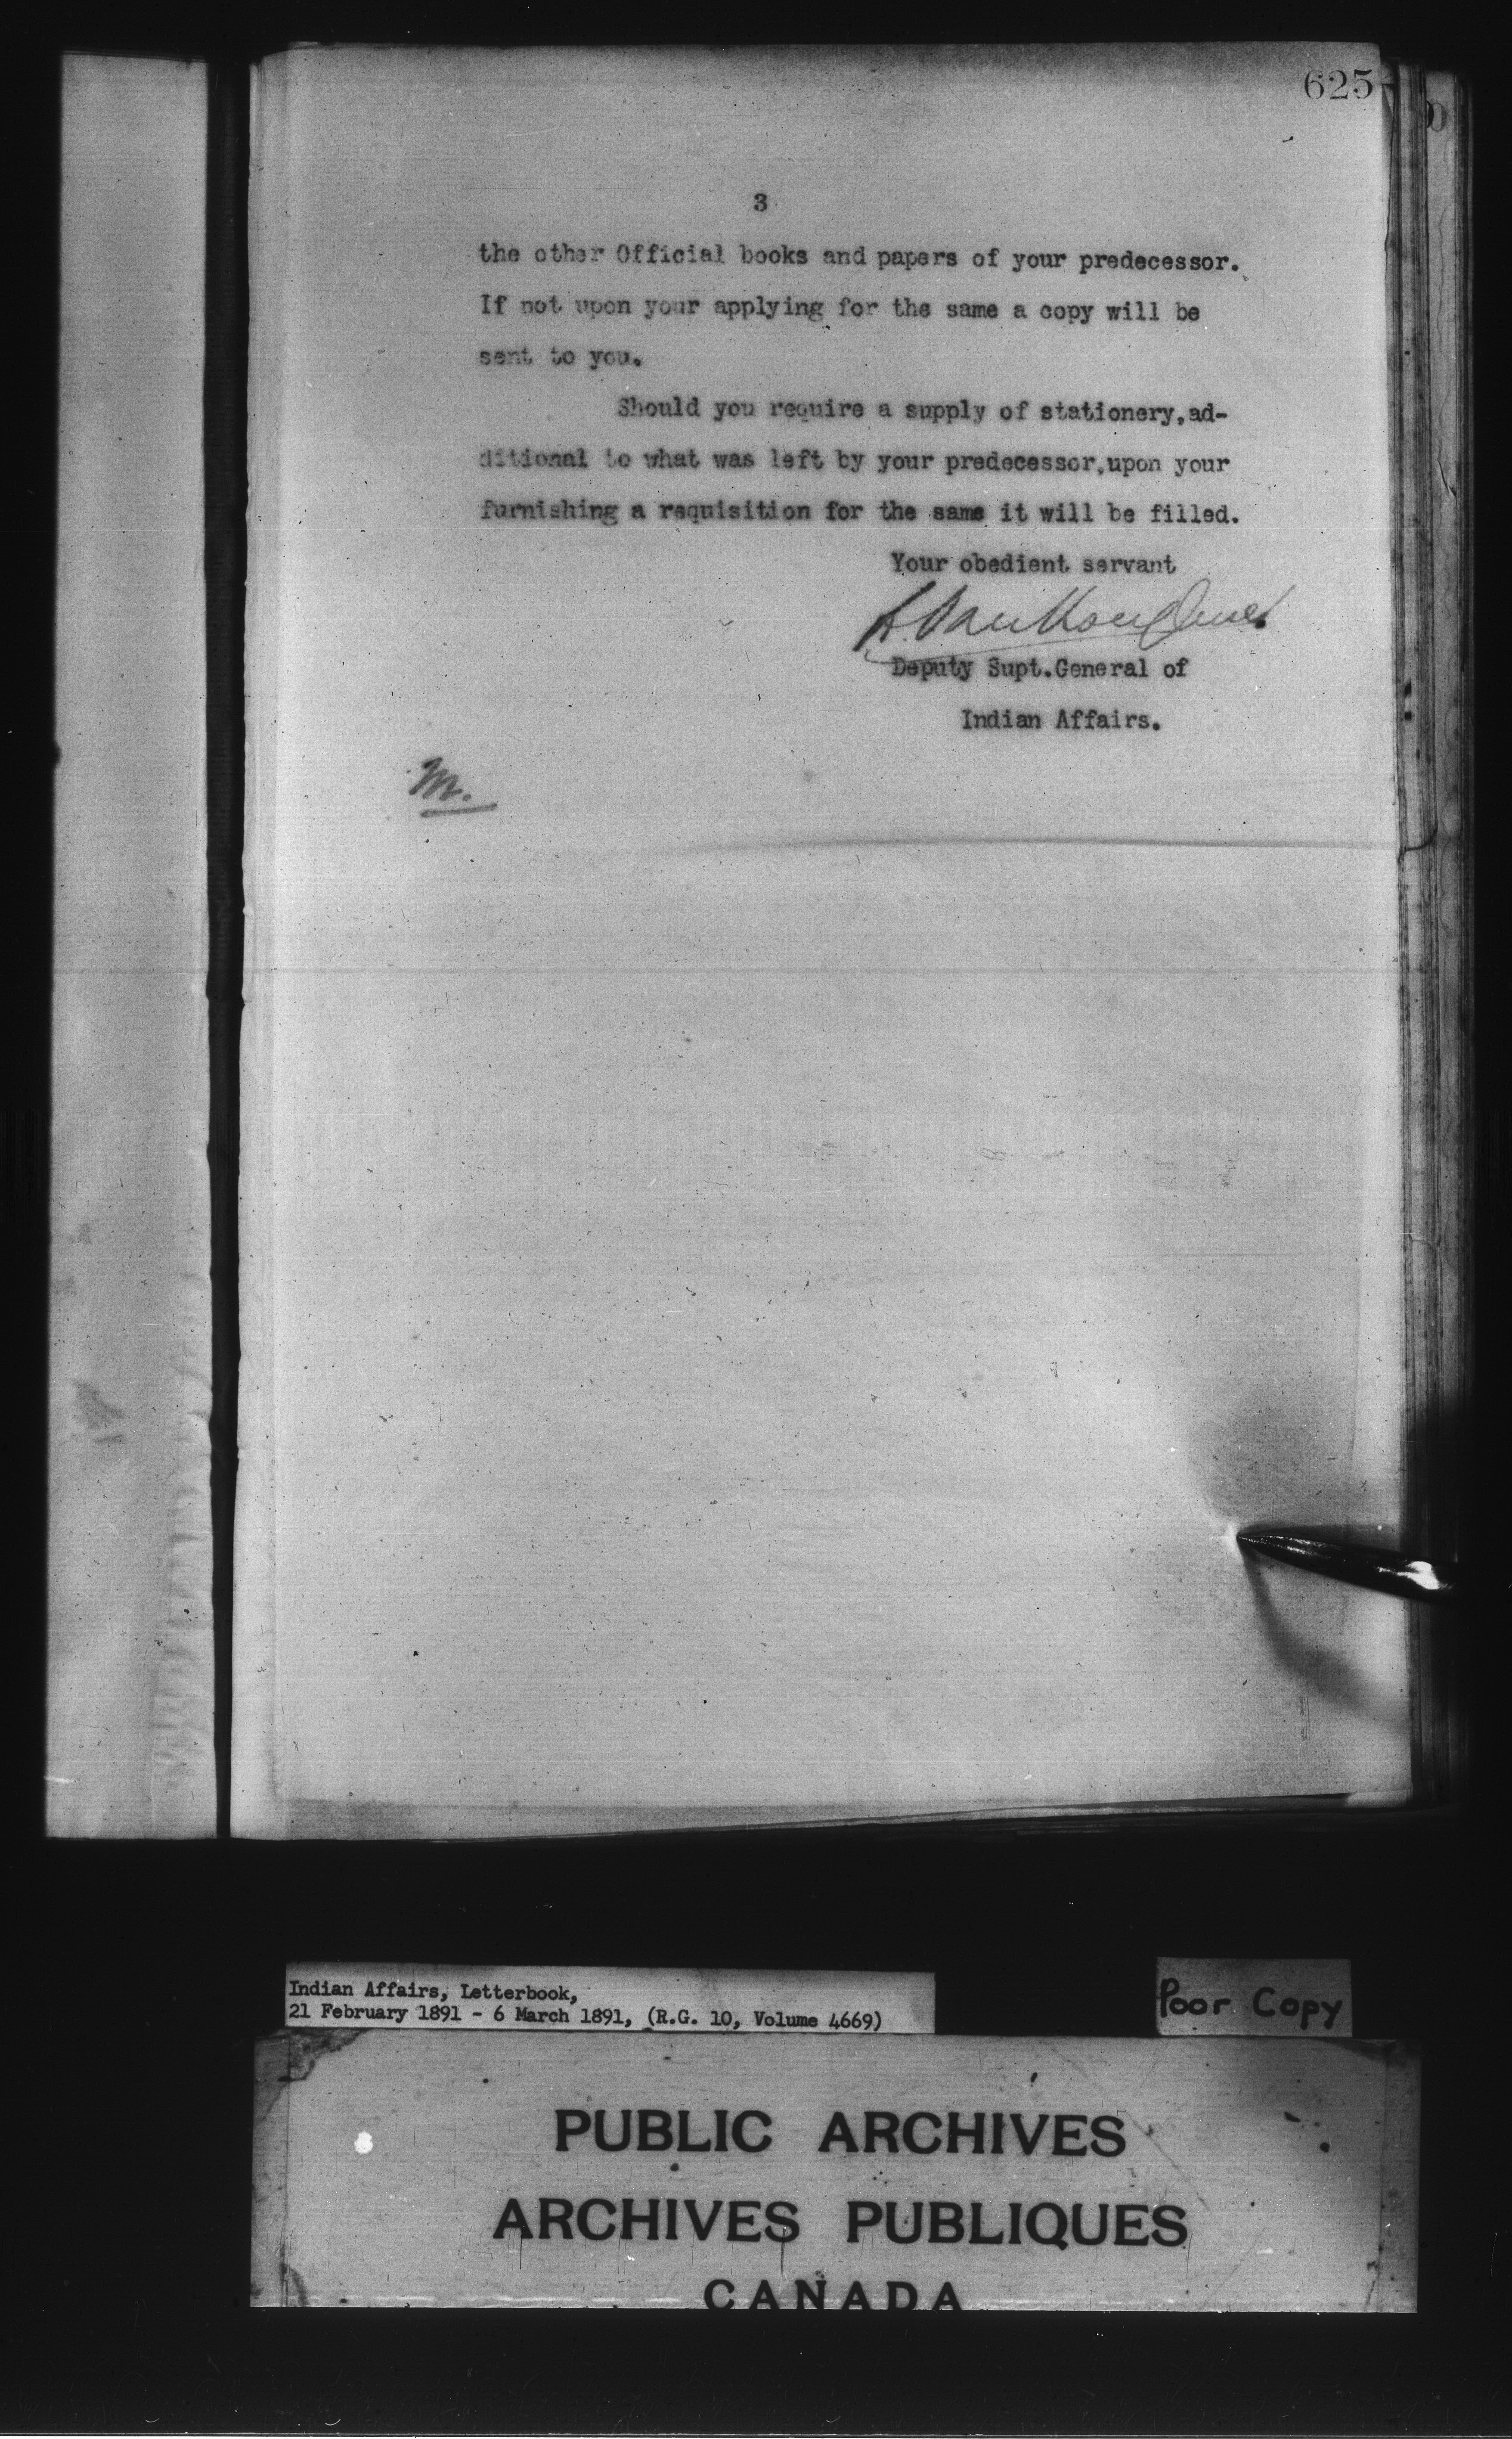 625
3
the other Official books and papers of your predecessor.
If not upon your applying for the same a copy will be
sent to you.
Should you require a supply of stationery,ad-
ditional to what was left by your predecessor,upon your
furnishing a requisition for the same it will be filled.
Your obedient servant
L. VanKoughnet
Deputy Supt.General of
Indian Affairs.
M.
Indian Affairs, Letterbook,
21 February 1891 - 6 March 1891, (R.G. 10, Volume 4669)
Poor Copy
PUBLIC ARCHIVES
ARCHIVES PUBLIQUES
CANADA